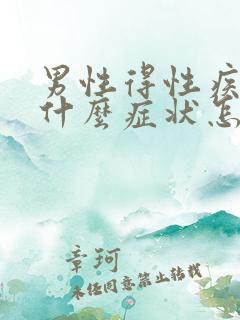 男性得性疾
什麼症状怎
章珂
未经同意禁止转载